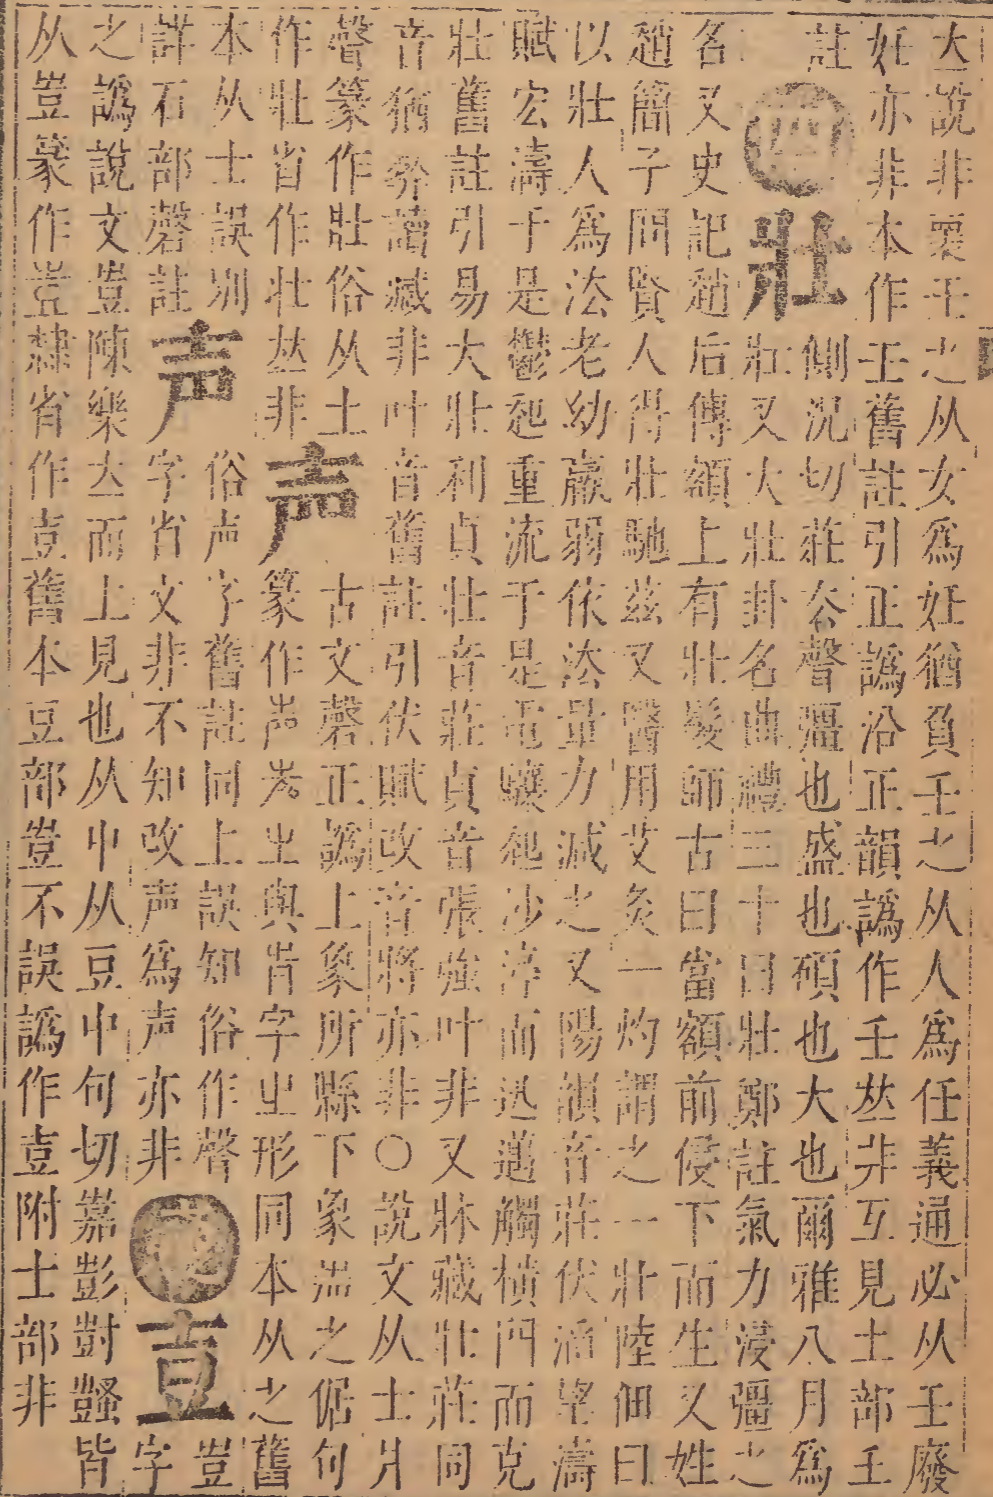 大說非㚻壬之从女爲妊猶負壬之从人爲任義通必从壬廢
妊亦非本作壬舊註引正譌沿正韻譌作壬𠀤非互見士部壬
註
四 壯 側況切莊去聲彊也盛也碩也大也爾雅八月爲
壯又大壯卦名曲禮三十曰壯鄭註氣力浸彊之
名又史記趙后傳額上有壯髮師古曰當額前侵下而生又姓
趙簡子問賢人得壯馳茲又醫用艾灸一灼謂之一壯陸佃曰
以壯人爲法老幼羸弱依法量力減之又陽韻音莊伏滔望濤
賦宏濤于是鬱起重流于是電驤起沙渟而迅邁觸橫門而克
壯舊註引易大壯利貞壯音莊貞音張強叶非又牀藏壯莊同
音猶夯讀臧非叶音舊註引伏賦改音將亦非○說文从士爿
聲篆作壯俗从土
作壯省作壮𠀤非 声 古文磬正譌上象所縣下象𡴀之倨句
篆作𡴀𡴀㞢與肯字㞢形同本从之舊
本从士誤別
詳石部磬註 声 俗声字舊註同上誤知俗作聲
字省文非不知改声爲声亦非 四 壴 字豈
之譌說文豈陳樂立而上見也从屮从豆中句切嘉彭對豑皆
从豈篆作壴隸省作壴舊本豆部豈不誤譌作壴附士部非